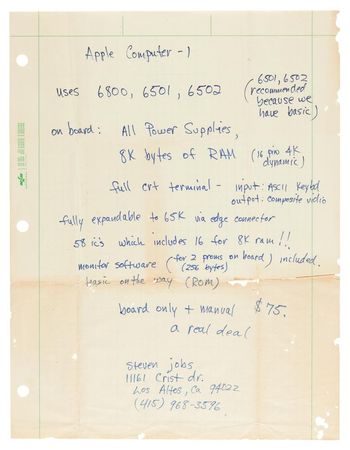 Apple Computer - 1
uses 6800, 6501, 6502 (6501, 6502
recommended
because we
have basic)
on board: All Power Supplies,
8K bytes of RAM (16 pin 4K
dynamic)
full crt terminal - input: ASCII Keybd
output: composite vidio
fully expandable to 65K via edge connector
58 ic's which includes 16 for 8K ram!!
monitor software (for 2 proms on board) included.
(256 bytes)
basic on the way (ROM)
board only + manual $75.
a real deal
Steven jobs
11161 Crist dr.
Los Altos, Ca 94022
(415) 968-3596.